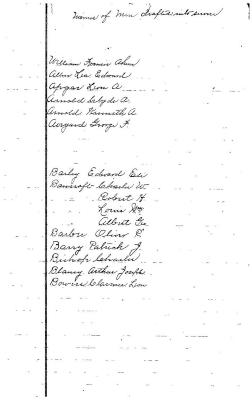 Names of Men drafted into service
William Homer Ahern
Allen Lea Edward
Apgar Leon A
Arnold Clyde A.
Arnold Kenneth A
Asgard George F.
Bailey Edward Lee
Bancroft Charles W.
Robert H
Louis Wm
Albert Geo
Barber Oliver R
Barry Patrick J
Bishop Charles
Blaney Arthur Joseph
Bowers Clarence Leon